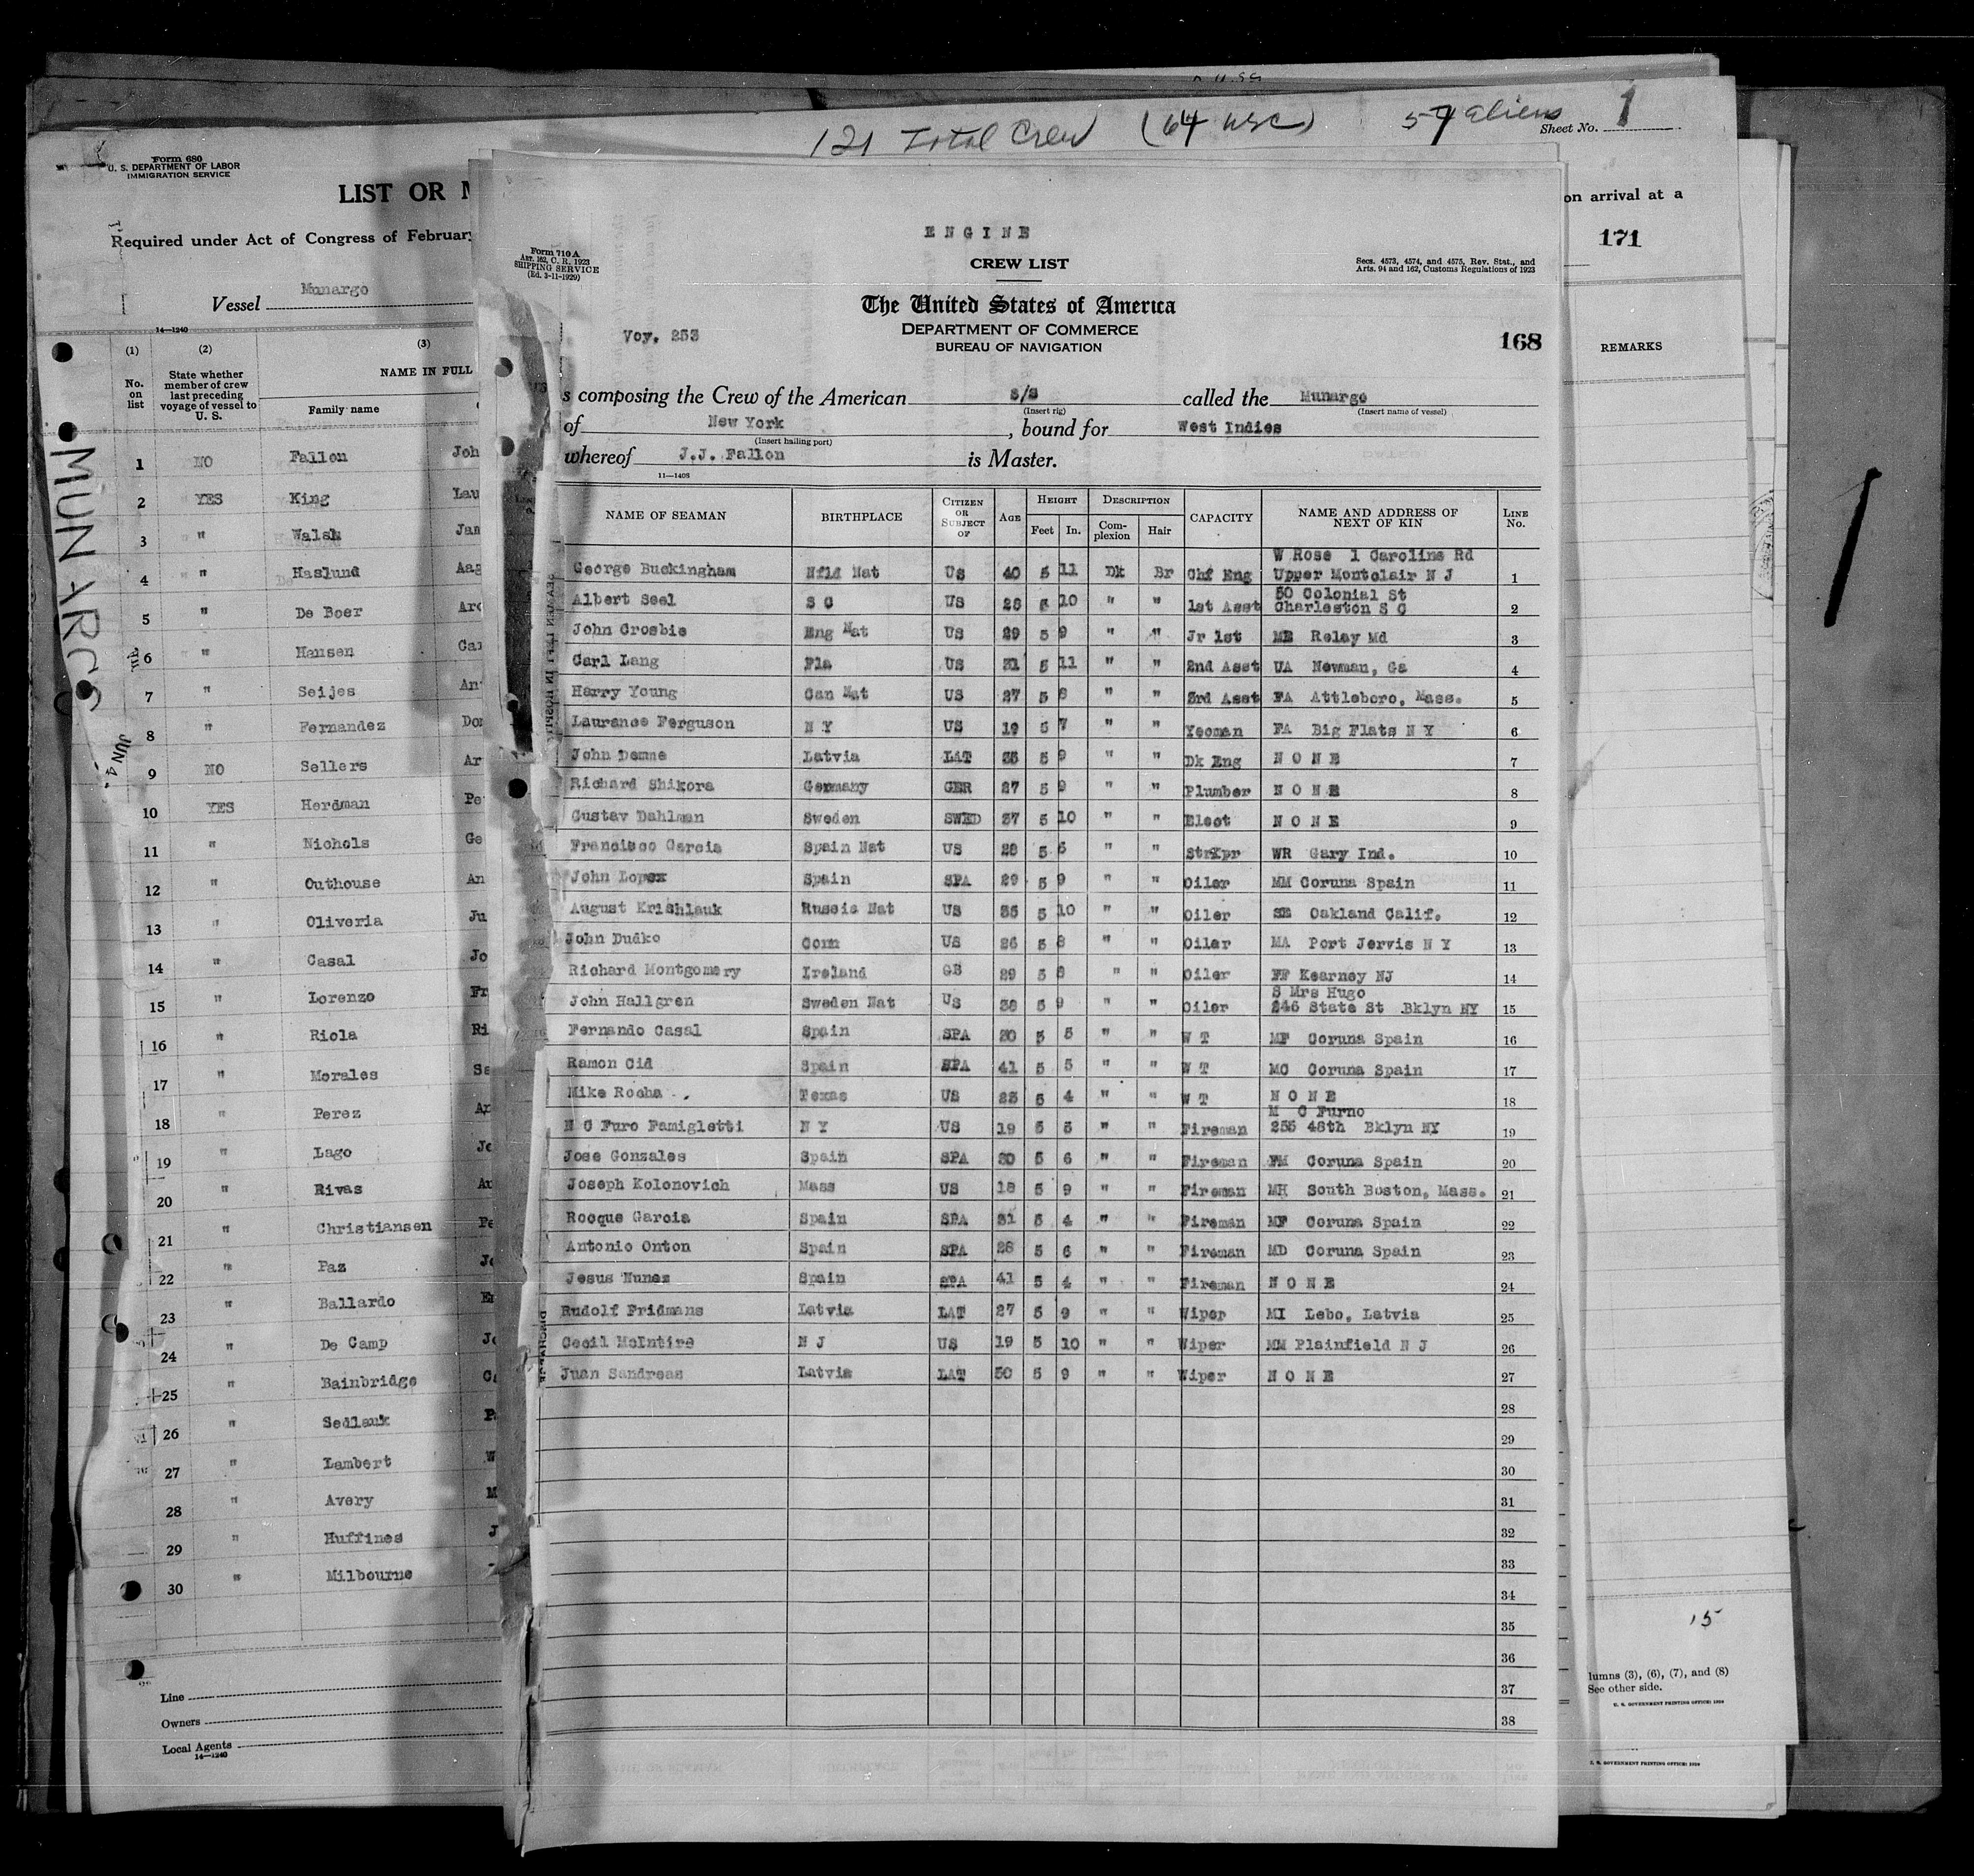 121 Total Crew (64 usc) 57 aliens
Sheet No. 1
Form 680
U. S. DEPARTMENT OF LABOR
IMMIGRATION SERVICE
LIST OR
Required under Act of Congress of February
Vessel Munargo
14—1240
(1) (2) (3)
No. on list
State whether member of crew last preceding voyage of vessel to U. S.
NAME IN FULL
Family name
1 NO Fallon Joh
2 YES King Lau
3 " Walsh Jam
4 " Haslund Aag
5 " De Boer Arc
6 " Hansen Car
7 " Seijes An
8 " Fernandez Dom
9 NO Sellers Ar
10 YES Herdman Pe
11 " Nichols Ge
12 " Outhouse An
13 " Oliveria Ju
14 " Casal Jo
15 " Lorenzo Fr
16 " Riola Ri
17 " Morales Sa
18 " Perez An
19 " Lago Jo
20 " Rivas An
21 " Christiansen Pe
22 " Paz Jo
23 " Ballardo En
24 " De Camp Jo
25 " Bainbridge
26 " Sedlauk
27 " Lambert W
28 " Avery M
29 " Huffines J
30 " Milbourne
Line
Owners
Local Agents
14—1240
MUNARGO
JUN 4
ENGINE
Form 710 A
Art. 162, C. R. 1923
SHIPPING SERVICE
(Ed. 3-11-1929)
CREW LIST
Secs. 4573, 4574, and 4575, Rev. Stat., and
Arts. 94 and 162, Customs Regulations of 1923
The United States of America
DEPARTMENT OF COMMERCE
BUREAU OF NAVIGATION
Voy. 253
168
s composing the Crew of the American s/s called the Munargo
(Insert rig) (Insert name of vessel)
of New York, bound for West Indies
(Insert hailing port)
whereof J.J. Fallon is Master.
11—1408
NAME OF SEAMAN BIRTHPLACE CITIZEN OR SUBJECT OF AGE HEIGHT Feet In. DESCRIPTION Complexion Hair CAPACITY NAME AND ADDRESS OF NEXT OF KIN LINE No.
W Rose 1 Caroline Rd
George Buckingham Nfld Nat US 40 5 11 Dk Br Chf Eng Upper Montclair N J 1
50 Colonial St
Albert Seel S C US 28 5 10 " " 1st Asst Charleston S C 2
John Crosbie Eng Nat US 29 5 9 " " Jr 1st ME Relay Md 3
Carl Lang Fla US 31 5 11 " " 2nd Asst UA Newman, Ga 4
Harry Young Can Nat US 27 5 8 " " 3rd Asst FA Attleboro, Mass. 5
Laurance Ferguson N Y US 19 5 7 " " Yeoman FA Big Flats N Y 6
John Demme Latvia LAT 35 5 9 " " Dk Eng NONE 7
Richard Shikora Germany GER 27 5 9 " " Plumber NONE 8
Gustav Dahlman Sweden SWED 37 5 10 " " Elect NONE 9
Francisco Garcia Spain Nat US 28 5 6 " " StrKpr WR Gary Ind. 10
John Lopez Spain SPA 29 5 9 " " Oiler MM Coruna Spain 11
August Krishlauk Russia Nat US 35 5 10 " " Oiler SE Oakland Calif. 12
John Dudko Conn US 26 5 8 " " Oiler MA Port Jervis N Y 13
Richard Montgomery Ireland GB 29 5 8 " " Oiler FF Kearney NJ 14
S Mrs Hugo
John Hallgren Sweden Nat US 38 5 9 " " Oiler 246 State St Bklyn NY 15
Fernando Casal Spain SPA 30 5 5 " " W T MF Coruna Spain 16
Ramon Cid Spain SPA 41 5 5 " " W T MC Coruna Spain 17
Mike Rocha Texas US 23 5 4 " " W T NONE 18
M C Furno
N C Furo Famigletti N Y US 19 5 5 " " Fireman 255 48th Bklyn NY 19
Jose Gonzales Spain SPA 30 5 6 " " Fireman FM Coruna Spain 20
Joseph Kolonovich Mass US 18 5 9 " " Fireman MH South Boston, Mass. 21
Rocque Garcia Spain SPA 31 5 4 " " Fireman MF Coruna Spain 22
Antonio Onton Spain SPA 28 5 6 " " Fireman MD Coruna Spain 23
Jesus Nunez Spain SPA 41 5 4 " " Fireman NONE 24
Rudolf Fridmans Latvia LAT 27 5 9 " " Wiper MI Lebo, Latvia 25
Cecil McIntire N J US 19 5 10 " " Wiper MM Plainfield N J 26
Juan Sandreas Latvia LAT 50 5 9 " " Wiper NONE 27
28
29
30
31
32
33
34
35
36
37
38
on arrival at a
171
REMARKS
15
lumns (3), (6), (7), and (8)
See other side.
U. S. GOVERNMENT PRINTING OFFICE: 1930